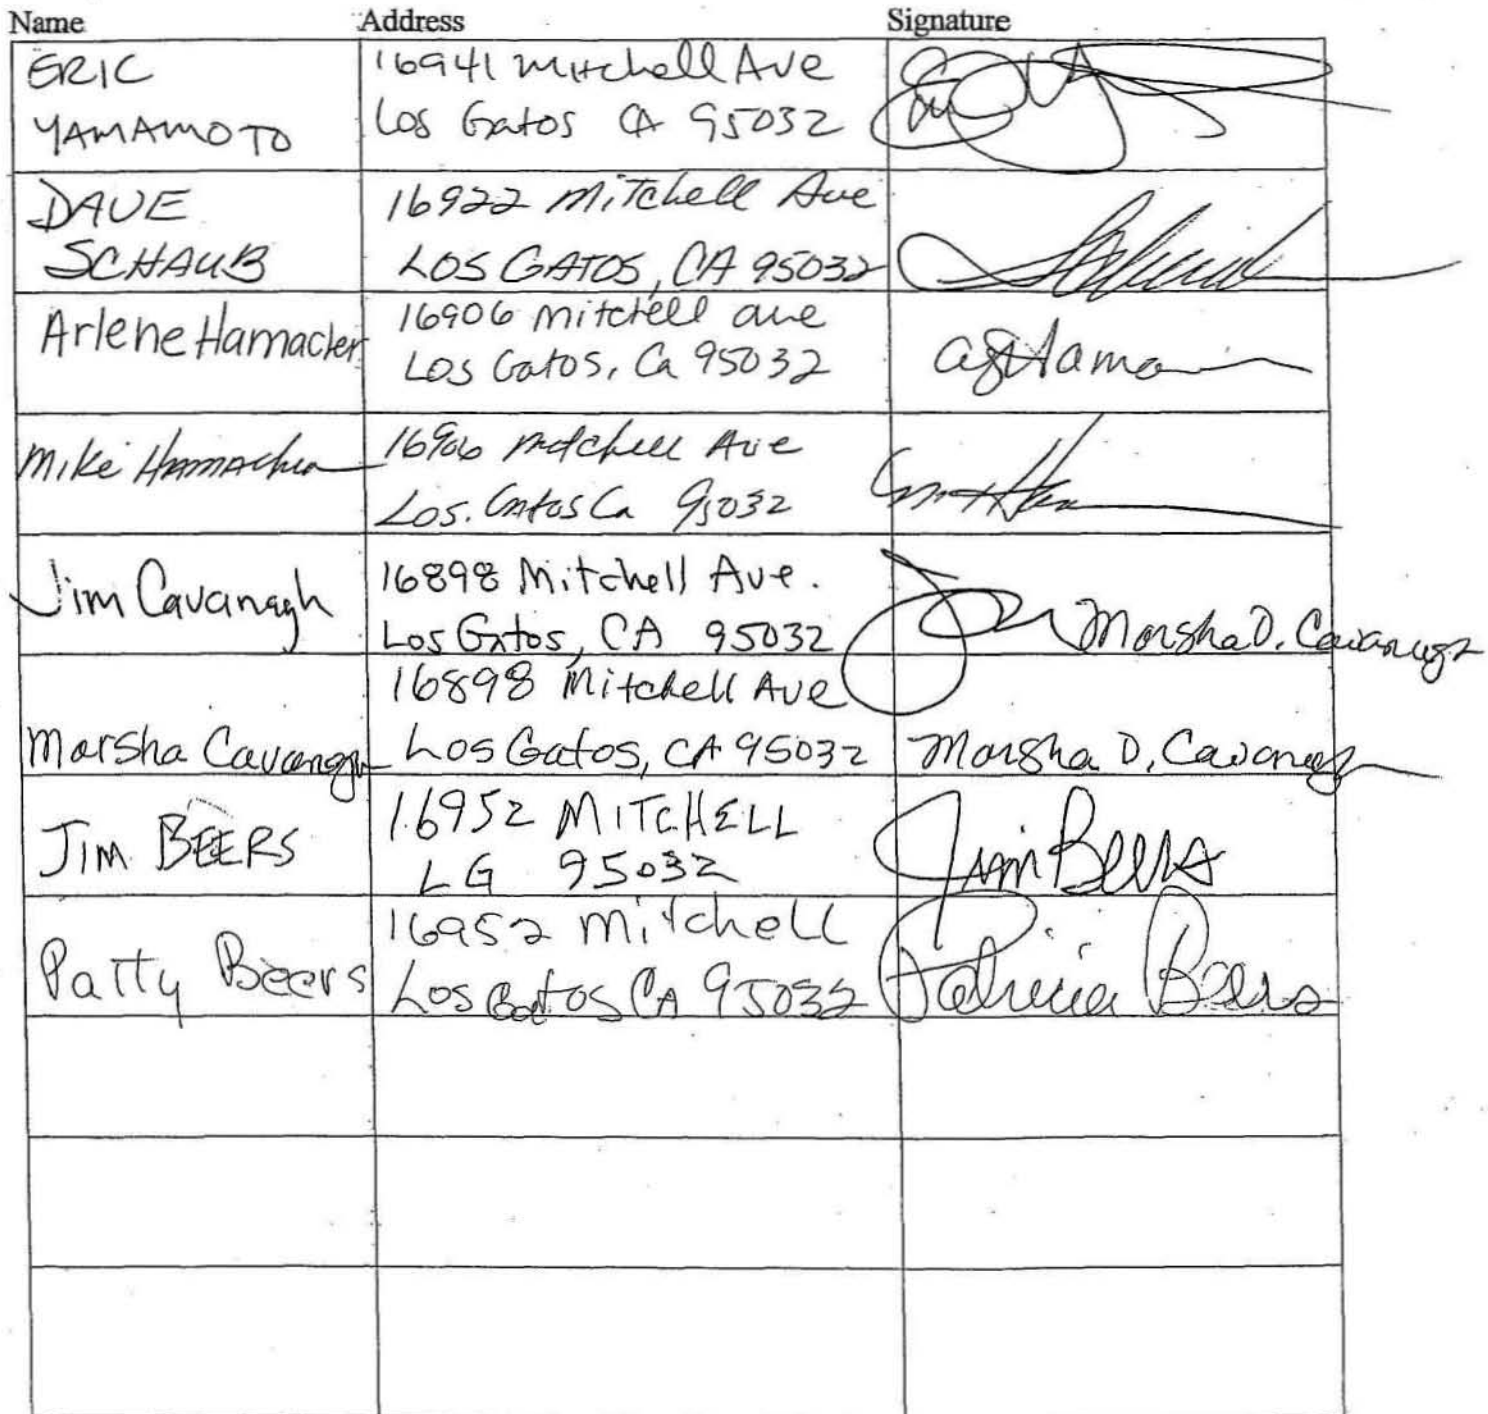 Name Address Signature
ERIC
YAMAMOTO
16941 Mitchell Ave
Los Gatos CA 95032
DAVE
SCHAUB
16922 Mitchell Ave
LOS GATOS, CA 95032
Arlene Hamacher
16906 mitchell ave
Los Gatos, Ca 95032
Mike Hamacher
16906 Mitchell Ave
Los. Gatos Ca 95032
Jim Cavanagh
16898 Mitchell Ave.
Los Gatos, CA 95032
Marsha D. Cavanagh
Marsha Cavanagh
16898 Mitchell Ave
Los Gatos, CA 95032
Marsha D. Cavanagh
JIM BEERS
16952 MITCHELL
LG 95032
Jim Beers
Patty Beers
16952 Mitchell
Los Gatos CA 95032
Patricia Beers